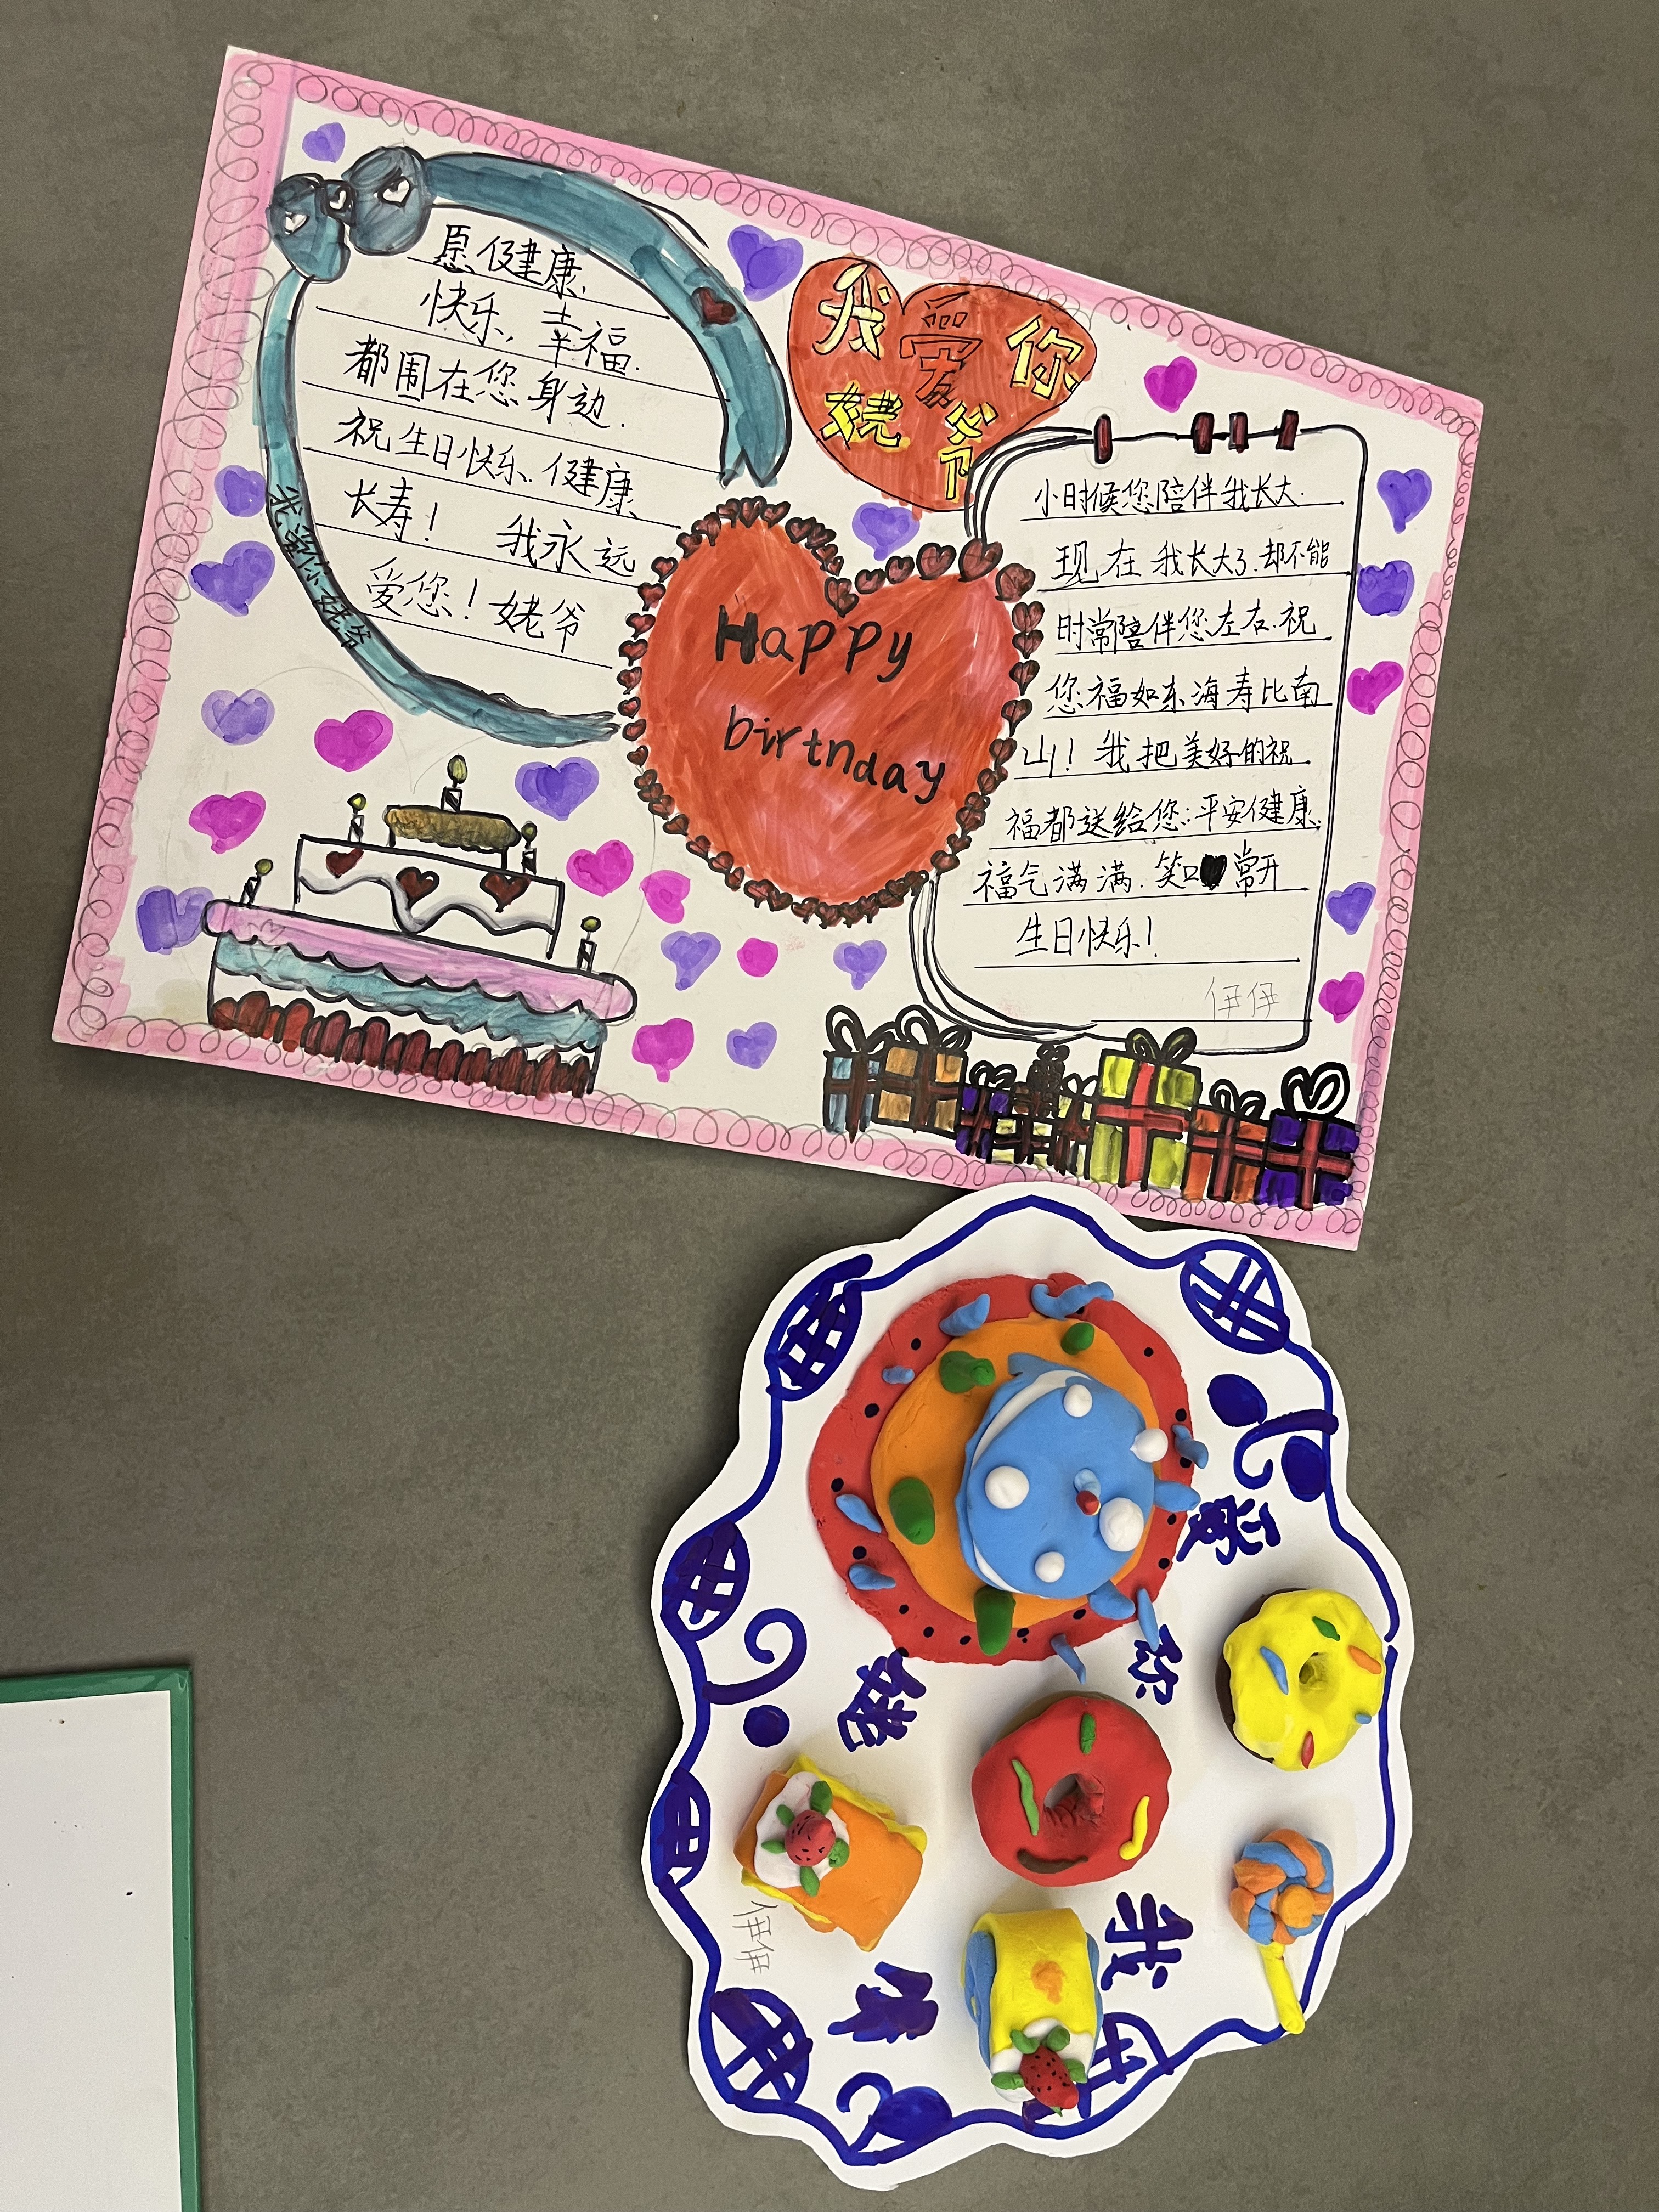 愿健康
快乐,幸福.
都围在您身边.
祝生日快乐.健康
长寿! 我永远
爱您!姥爷
我爱你姥爷
我爱你
姥爷
Happy
birthday
小时候您陪伴我长大.
现在我长大了.却不能
时常陪伴您左右.祝
您福如东海寿比南
山!我把美好的祝
福都送给您:平安健康.
福气满满.笑口常开
生日快乐!
伊伊
我爱你
姥爷
伊伊